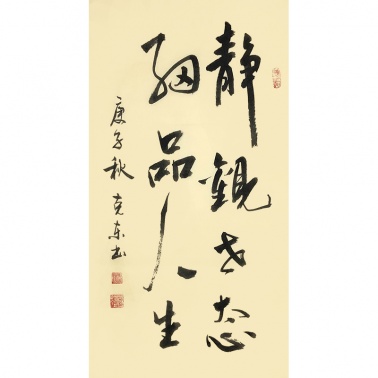 静觀世态
細品人生
庚子秋 克东书